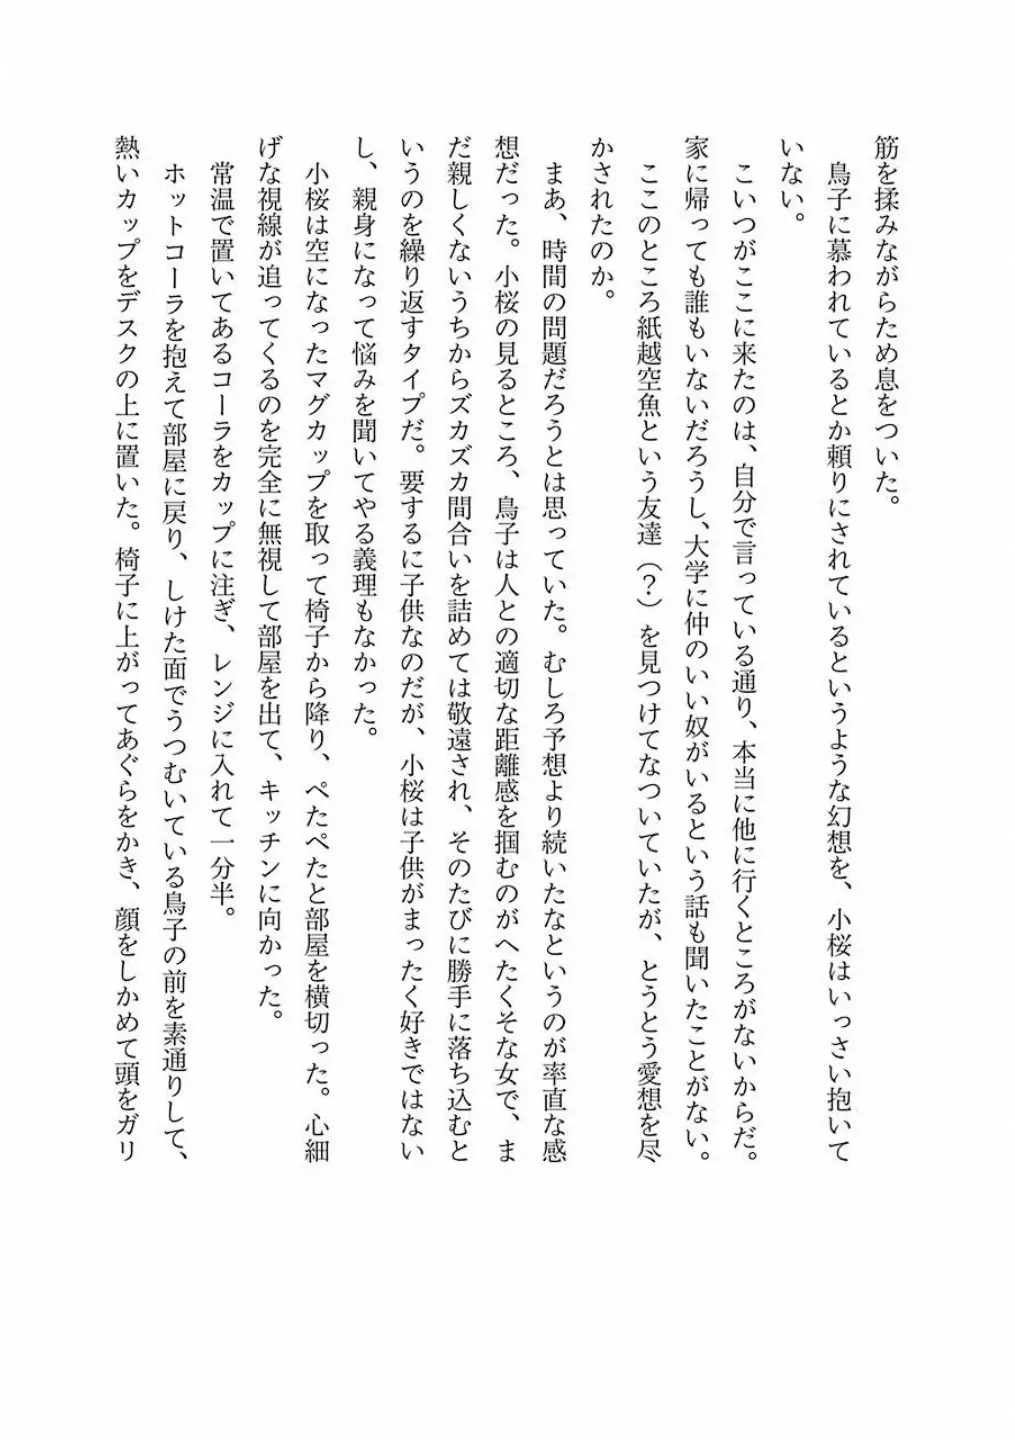 筋を揉みながらため息をついた。
　鳥子に慕われているとか頼りにされているというような幻想を、小桜はいっさい抱いて
いない。
　こいつがここに来たのは、自分で言っている通り、本当に他に行くところがないからだ。
家に帰っても誰もいないだろうし、大学に仲のいい奴がいるという話も聞いたことがない。
　ここのところ紙越空魚という友達（？）を見つけてなついていたが、とうとう愛想を尽
かされたのか。
　まあ、時間の問題だろうとは思っていた。むしろ予想より続いたなというのが率直な感
想だった。小桜の見るところ、鳥子は人との適切な距離感を掴むのがへたくそな女で、ま
だ親しくないうちからズカズカ間合いを詰めては敬遠され、そのたびに勝手に落ち込むと
いうのを繰り返すタイプだ。要するに子供なのだが、小桜は子供がまったく好きではない
し、親身になって悩みを聞いてやる義理もなかった。
　小桜は空になったマグカップを取って椅子から降り、ぺたぺたと部屋を横切った。心細
げな視線が追ってくるのを完全に無視して部屋を出て、キッチンに向かった。
　常温で置いてあるコーラをカップに注ぎ、レンジに入れて一分半。
　ホットコーラを抱えて部屋に戻り、しけた面でうつむいている鳥子の前を素通りして、
熱いカップをデスクの上に置いた。椅子に上がってあぐらをかき、顔をしかめて頭をガリ